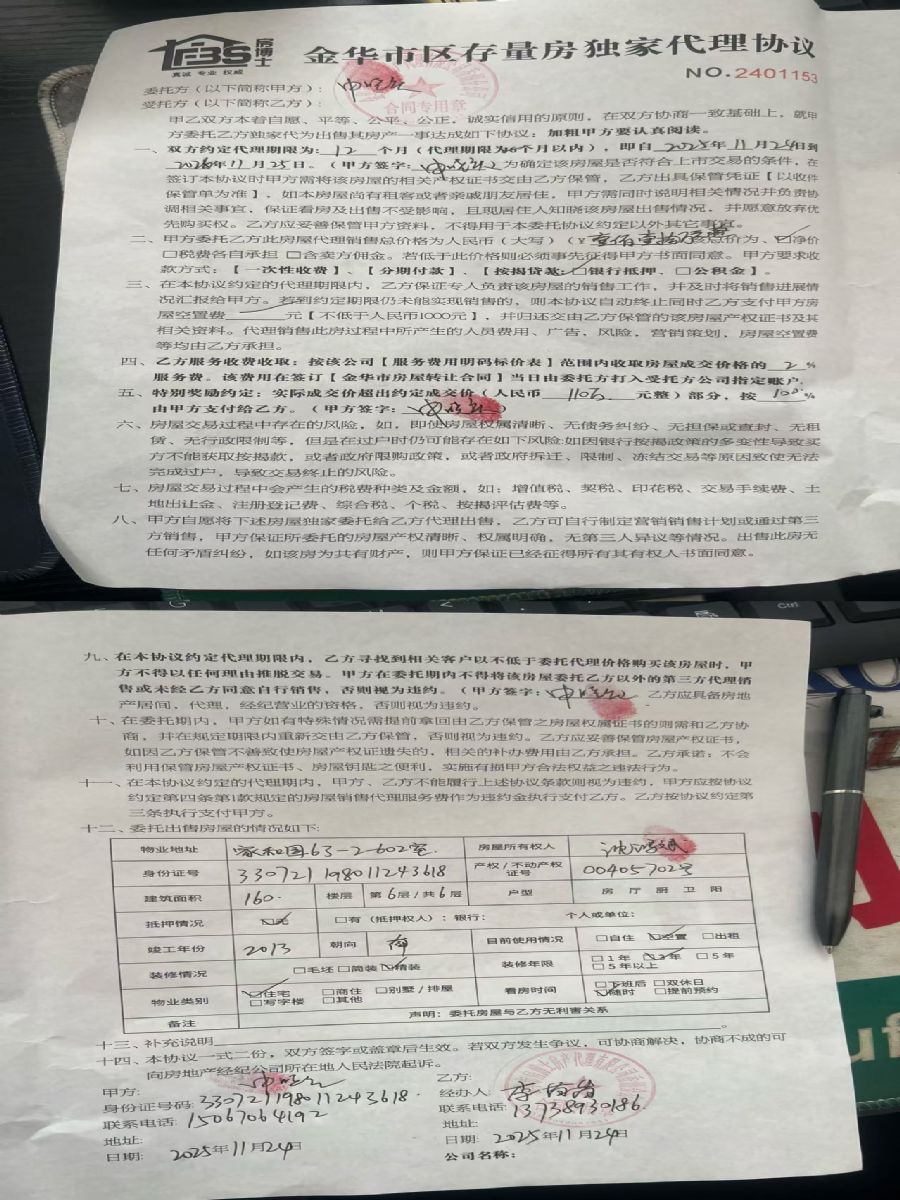 FBS 房博士
真诚 专业 权威
金华市区存量房独家代理协议
NO.2401153
委托方（以下简称甲方）：
受托方（以下简称乙方）：
合同专用章
甲乙双方本着自愿、平等、公平、公正，诚实信用的原则，在双方协商一致基础上，就甲
方委托乙方独家代为出售其房产一事达成如下协议：加粗甲方要认真阅读。
一、双方约定代理期限为：12 个月（代理期限为6个月以内），即自2025年11月24日到
2026年11月25日。（甲方签字： ）为确定该房屋是否符合上市交易的条件，在
签订本协议时甲方需将该房屋的相关产权证书交由乙方保管，乙方出具保管凭证【以收件
保管单为准】，如本房屋尚有租客或者亲戚朋友居住，甲方需同时说明相关情况并负责协
调相关事宜，保证看房及出售不受影响，且现居住人知晓该房屋出售情况，并愿意放弃优
先购买权。乙方应妥善保管甲方资料，不得用于本委托协议约定以外其它事宜。
二、甲方委托乙方此房屋代理销售总价格为人民币（大写）（¥ 该总价为、☑净价
□税费各自承担 □含卖方佣金。若低于此价格则必须事先征得甲方书面同意。甲方要求收
款方式：【一次性收费】、【分期付款】、【按揭贷款：□银行抵押、□公积金】。
三、在本协议约定的代理期限内，乙方保证专人负责该房屋的销售工作，并及时将销售进展情
况汇报给甲方。若到约定期限仍未能实现销售的，则本协议自动终止同时乙方支付甲方房
屋空置费 元【不低于人民币1000元】，并归还交由乙方保管的该房屋产权证书及其
相关资料。代理销售此房过程中所产生的人员费用、广告，风险，营销策划，房屋空置费
等均由乙方承担。
四、乙方服务收费收取：按该公司【服务费用明码标价表】范围内收取房屋成交价格的 2 %
服务费。该费用在签订【金华市房屋转让合同】当日由委托方打入受托方公司指定账户。
五、特别奖励约定：实际成交价超出约定成交价（人民币 110万 元整）部分，按 100 %
由甲方支付给乙方。（甲方签字： ）
六、房屋交易过程中存在的风险，如，即使房屋权属清晰、无债务纠纷、无担保或查封、无租
赁、无行政限制等，但是在过户时仍可能存在如下风险:如因银行按揭政策的多变性导致买
方不能获取按揭款，或者政府限购政策，或者政府拆迁、限制、冻结交易等原因致使无法
完成过户，导致交易终止的风险。
七、房屋交易过程中会产生的税费种类及金额，如：增值税、契税、印花税、交易手续费、土
地出让金、注册登记费、综合税、个税、按揭评估费等。
八、甲方自愿将下述房屋独家委托给乙方代理出售，乙方可自行制定营销销售计划或通过第三
方销售，甲方保证所委托的房屋产权清晰、权属明确，无第三人异议等情况。出售此房无
任何矛盾纠纷，如该房为共有财产，则甲方保证已经征得所有其有权人书面同意。
Ctrl
九、在本协议约定代理期限内，乙方寻找到相关客户以不低于委托代理价格购买该房屋时，甲
方不得以任何理由推脱交易。甲方在委托期内不得将该房屋委托乙方以外的第三方代理销
售或未经乙方同意自行销售，否则视为违约。（甲方签字： 乙方应具备房地
产居间，代理，经纪营业的资格，否则视为违约。
十、在委托期内，甲方如有特殊情况需提前拿回由乙方保管之房屋权属证书的则需和乙方协
商，并在规定期限内重新交由乙方保管，否则视为违约。乙方应妥善保管房屋产权证书，
如因乙方保管不善致使房屋产权证遗失的，相关的补办费用由乙方承担。乙方承诺：不会
利用保管房屋产权证书、房屋钥匙之便利，实施有损甲方合法权益之违法行为。
十一、在本协议约定的代理期内，甲方、乙方不能履行上述协议条款则视为违约，甲方应按协议
约定第四条第1款规定的房屋销售代理服务费作为违约金执行支付乙方。乙方按协议约定第
三条执行支付甲方。
十二、委托出售房屋的情况如下:
物业地址 家和园63-2-602室 房屋所有权人
身份证号 330721198011243618 产权/不动产权证号 00405702号
建筑面积 160 楼层 第6层/共6层 户型 房 厅 厨 卫 阳
抵押情况 ☑无 □有（抵押权人）：银行： 个人或单位：
竣工年份 2013 朝向 南 目前使用情况 □自住 ☑空置 □出租
装修情况 □毛坯 □简装 ☑精装 装修年限 □1年 ☑3年 □5年 □5年以上
物业类别 ☑住宅 □商住 □别墅/排屋 □写字楼 □其他 看房时间 □下班后 □双休日 ☑随时 □提前预约
备注 声明：委托房屋与乙方无利害关系
十三、补充说明
十四、本协议一式二份，双方签字或盖章后生效。若双方发生争议，可协商解决，协商不成的可
向房地产经纪公司所在地人民法院起诉。
甲方：
身份证号码：330721198011243618
联系电话：15067064192
地址：
日期：2025年11月24日
乙方：
经办人：
联系电话：13738930186
地址：
日期：2025年11月24日
公司名称：